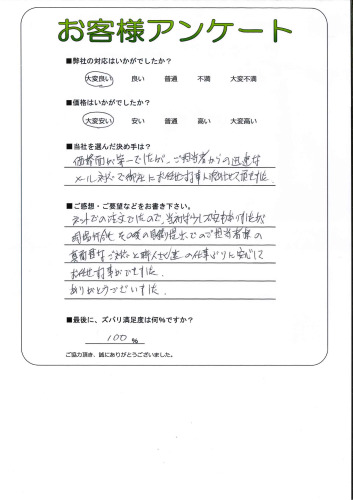 お客様アンケート
■弊社の対応はいかがでしたか？
大変良い 良い 普通 不満 大変不満
■価格はいかがでしたか？
大変安い 安い 普通 高い 大変高い
■当社を選んだ決め手は？
価格面が第一でしたが、ご担当者からの迅速な
メール対応で御社にお任せする事に決めさせて頂きました
■ご感想・ご要望などをお書き下さい。
ネットでの注文でしたので、当初は少し不安もありましたが
その後の ご担当者様の
ご対応と職人さん達の仕事ぶりに安心して
お任せする事ができました
ありがとうございました
■最後に、ズバリ満足度は何%ですか？
100 %
ご協力頂き、誠にありがとうございました。